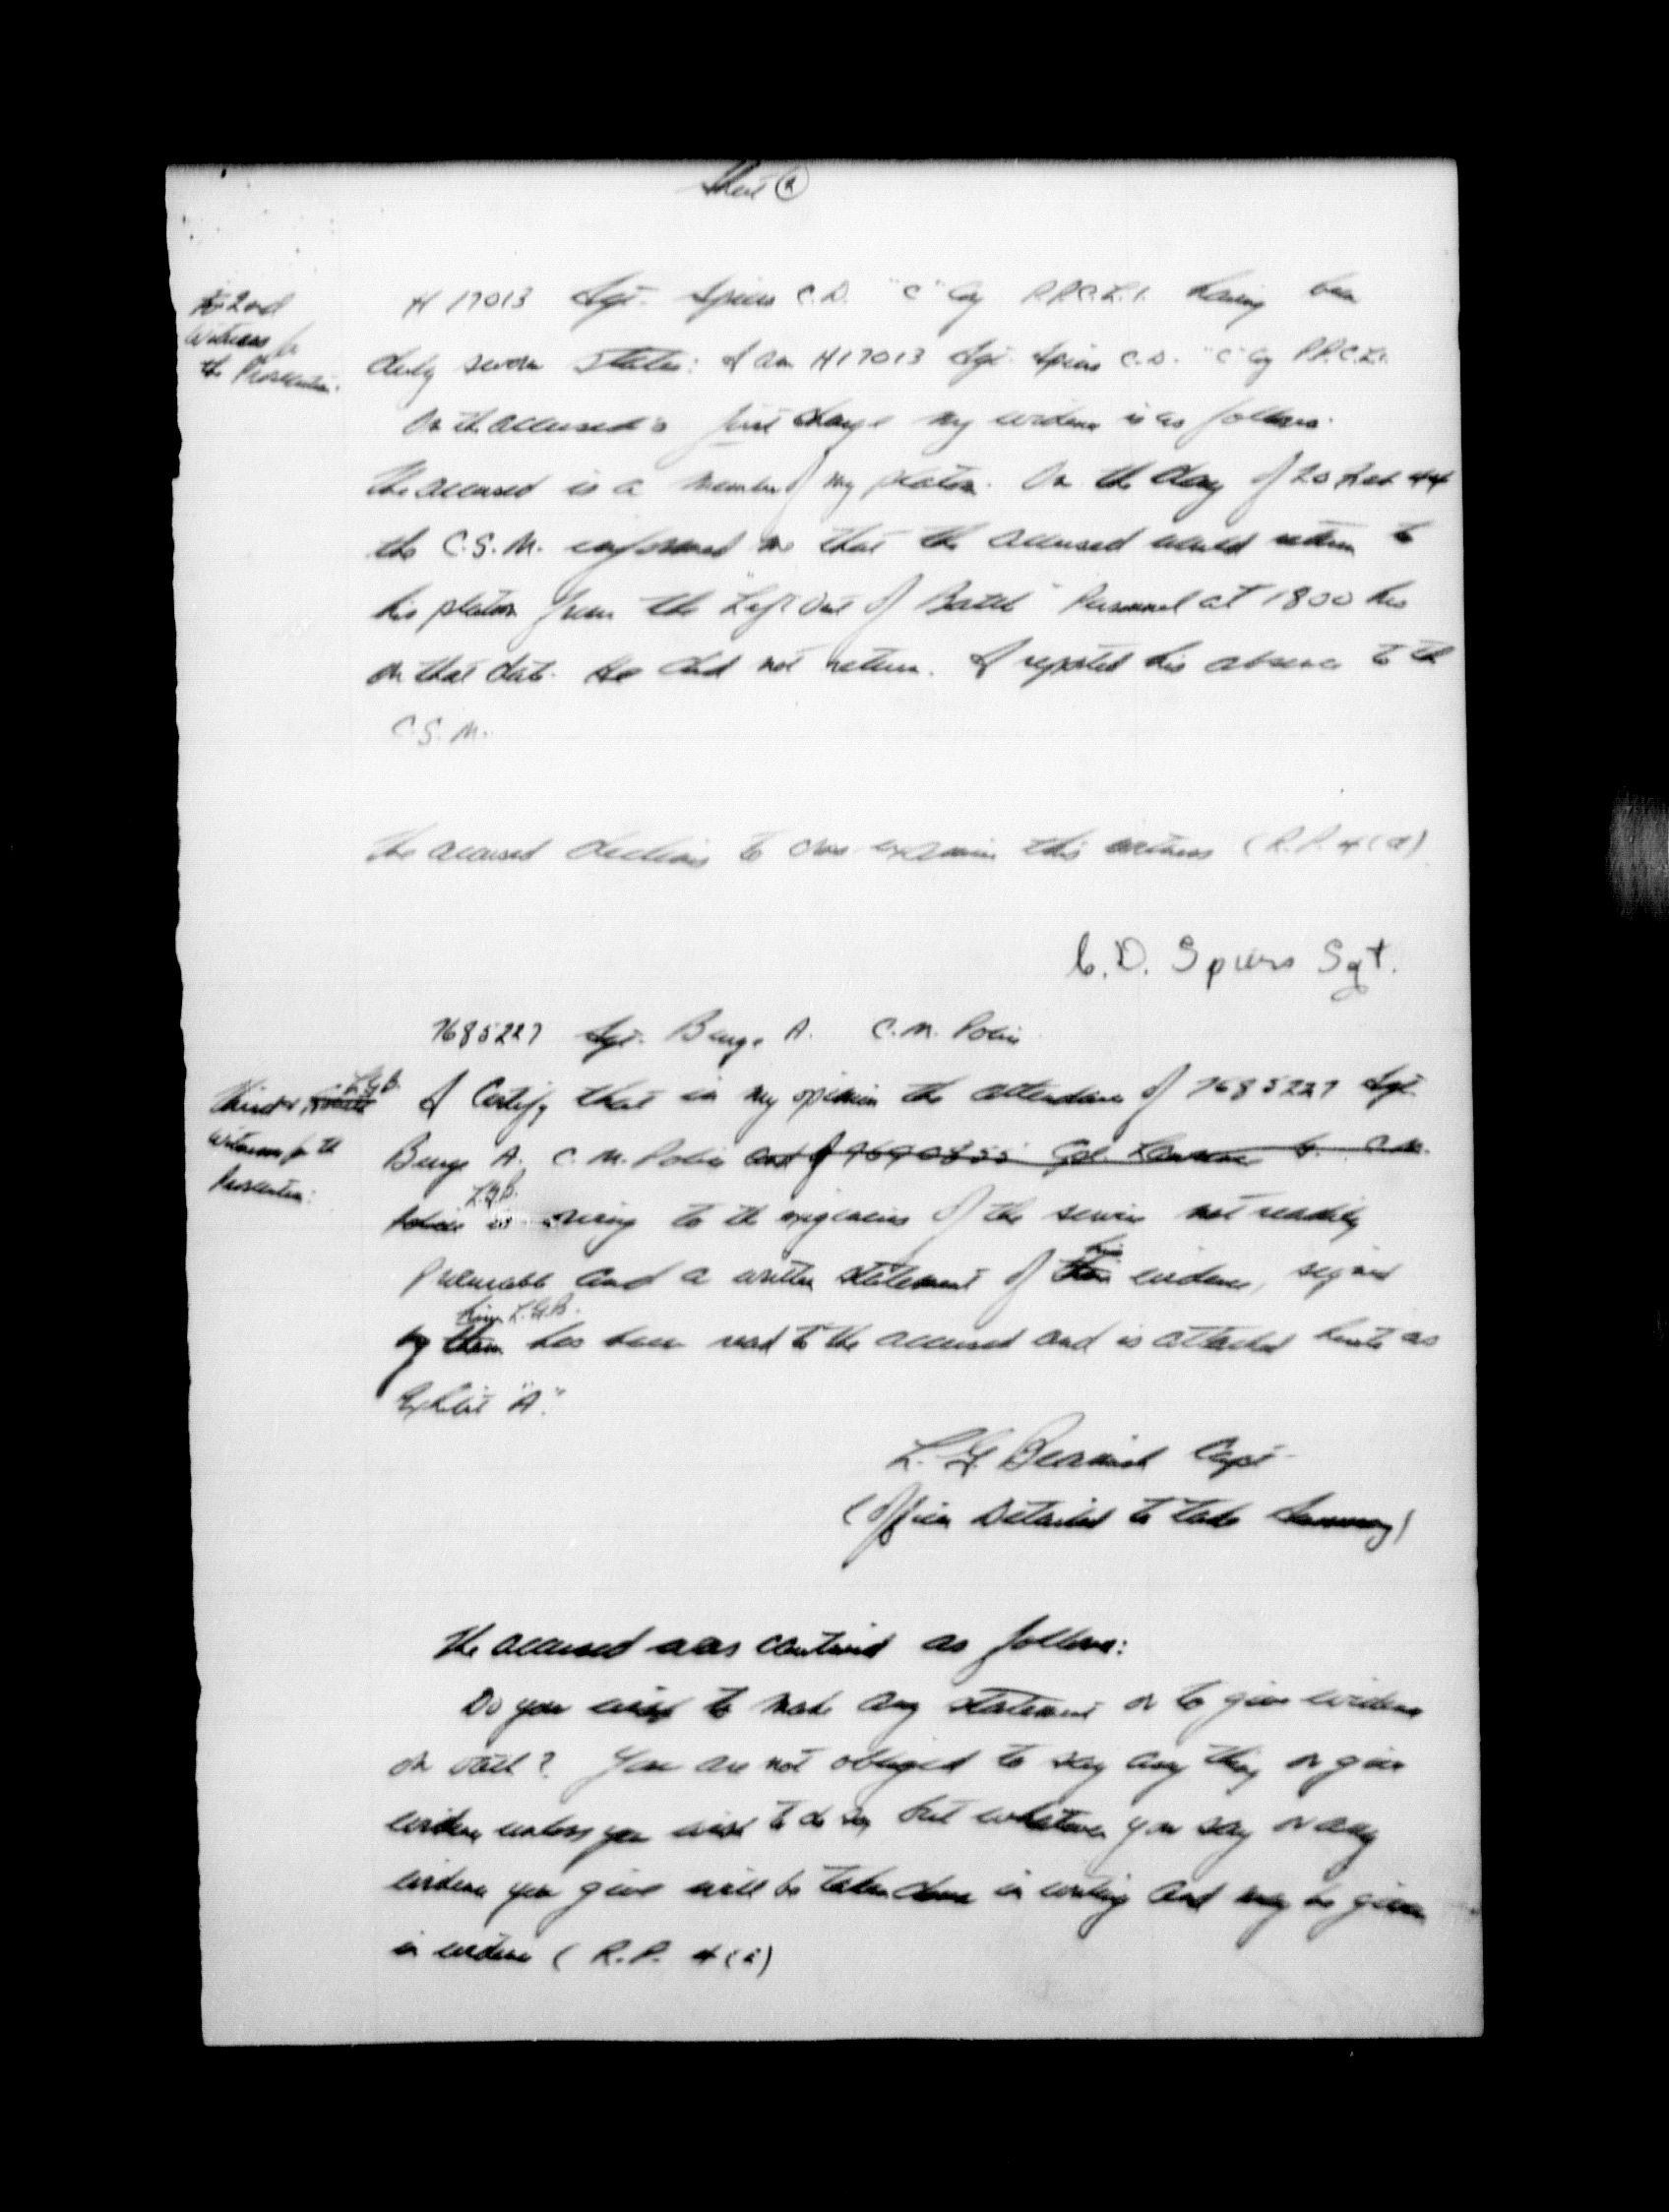 Sheet 2
The 2nd
Witness for
the Prosecution:
H 17013 Sgt. Spiers C.D. "C" Coy P.P.C.L.I. having been
duly sworn states: I am H17013 Sgt. Spiers C.D. "C" Coy P.P.C.L.I.
On the accused's first charge my evidence is as follows:
The accused is a member of my platoon. On the day of 20 Feb 44
the C.S.M. informed me that the accused would return to
his platoon from the "Left Out of Battle" Personnel at 1800 hrs
on that date. He did not return. I reported his absence to the
C.S.M.
The accused declines to cross-examine this witness (R.P. 4(a)
C.D. Spiers Sgt.
7685227 Sgt. Benge A. C.M. Police
L.G.B.
Third
Witness for the
Prosecution:
I Certify that in my opinion the attendance of 7685227 Sgt.
Benge A. C.M. Police and of Cpl. C.M.
L.G.B.
Police is owing to the exigencies of the service not readily
his
procurable and a written statement of their evidence, signed
him L.G.B.
by them has been read to the accused and is attached hereto as
Exhibit "A".
L. G. Capt
(Officer Detailed to take Summary)
The accused was cautioned as follows:
Do you wish to make any statement or to give evidence
on oath? You are not obliged to say any thing or give
evidence unless you wish to do so, but whatever you say or any
evidence you give will be taken down in writing and may be given
in evidence (R.P. 4(